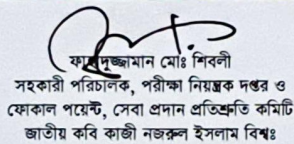 মোঃ শিবলী
সহকারী পরিচালক, পরীক্ষা নিয়ন্ত্রক দপ্তর ও
ফোকাল পয়েন্ট, সেবা প্রদান প্রতিশ্রুতি কমিটি
জাতীয় কবি কাজী নজরুল ইসলাম বিশ্বঃ